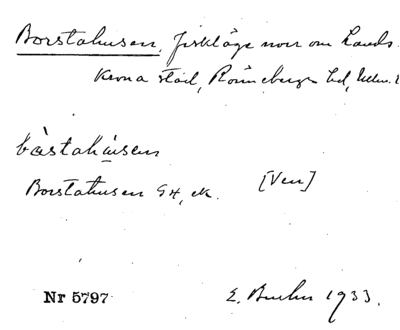 Borstahusen, fiskläge norr om Lands-
krona stad, Rönnebergs hd, Mlm. l
bòstahùsen
Borstahusen GK, ek. [Ven]
Nr 5797 E. 1933.